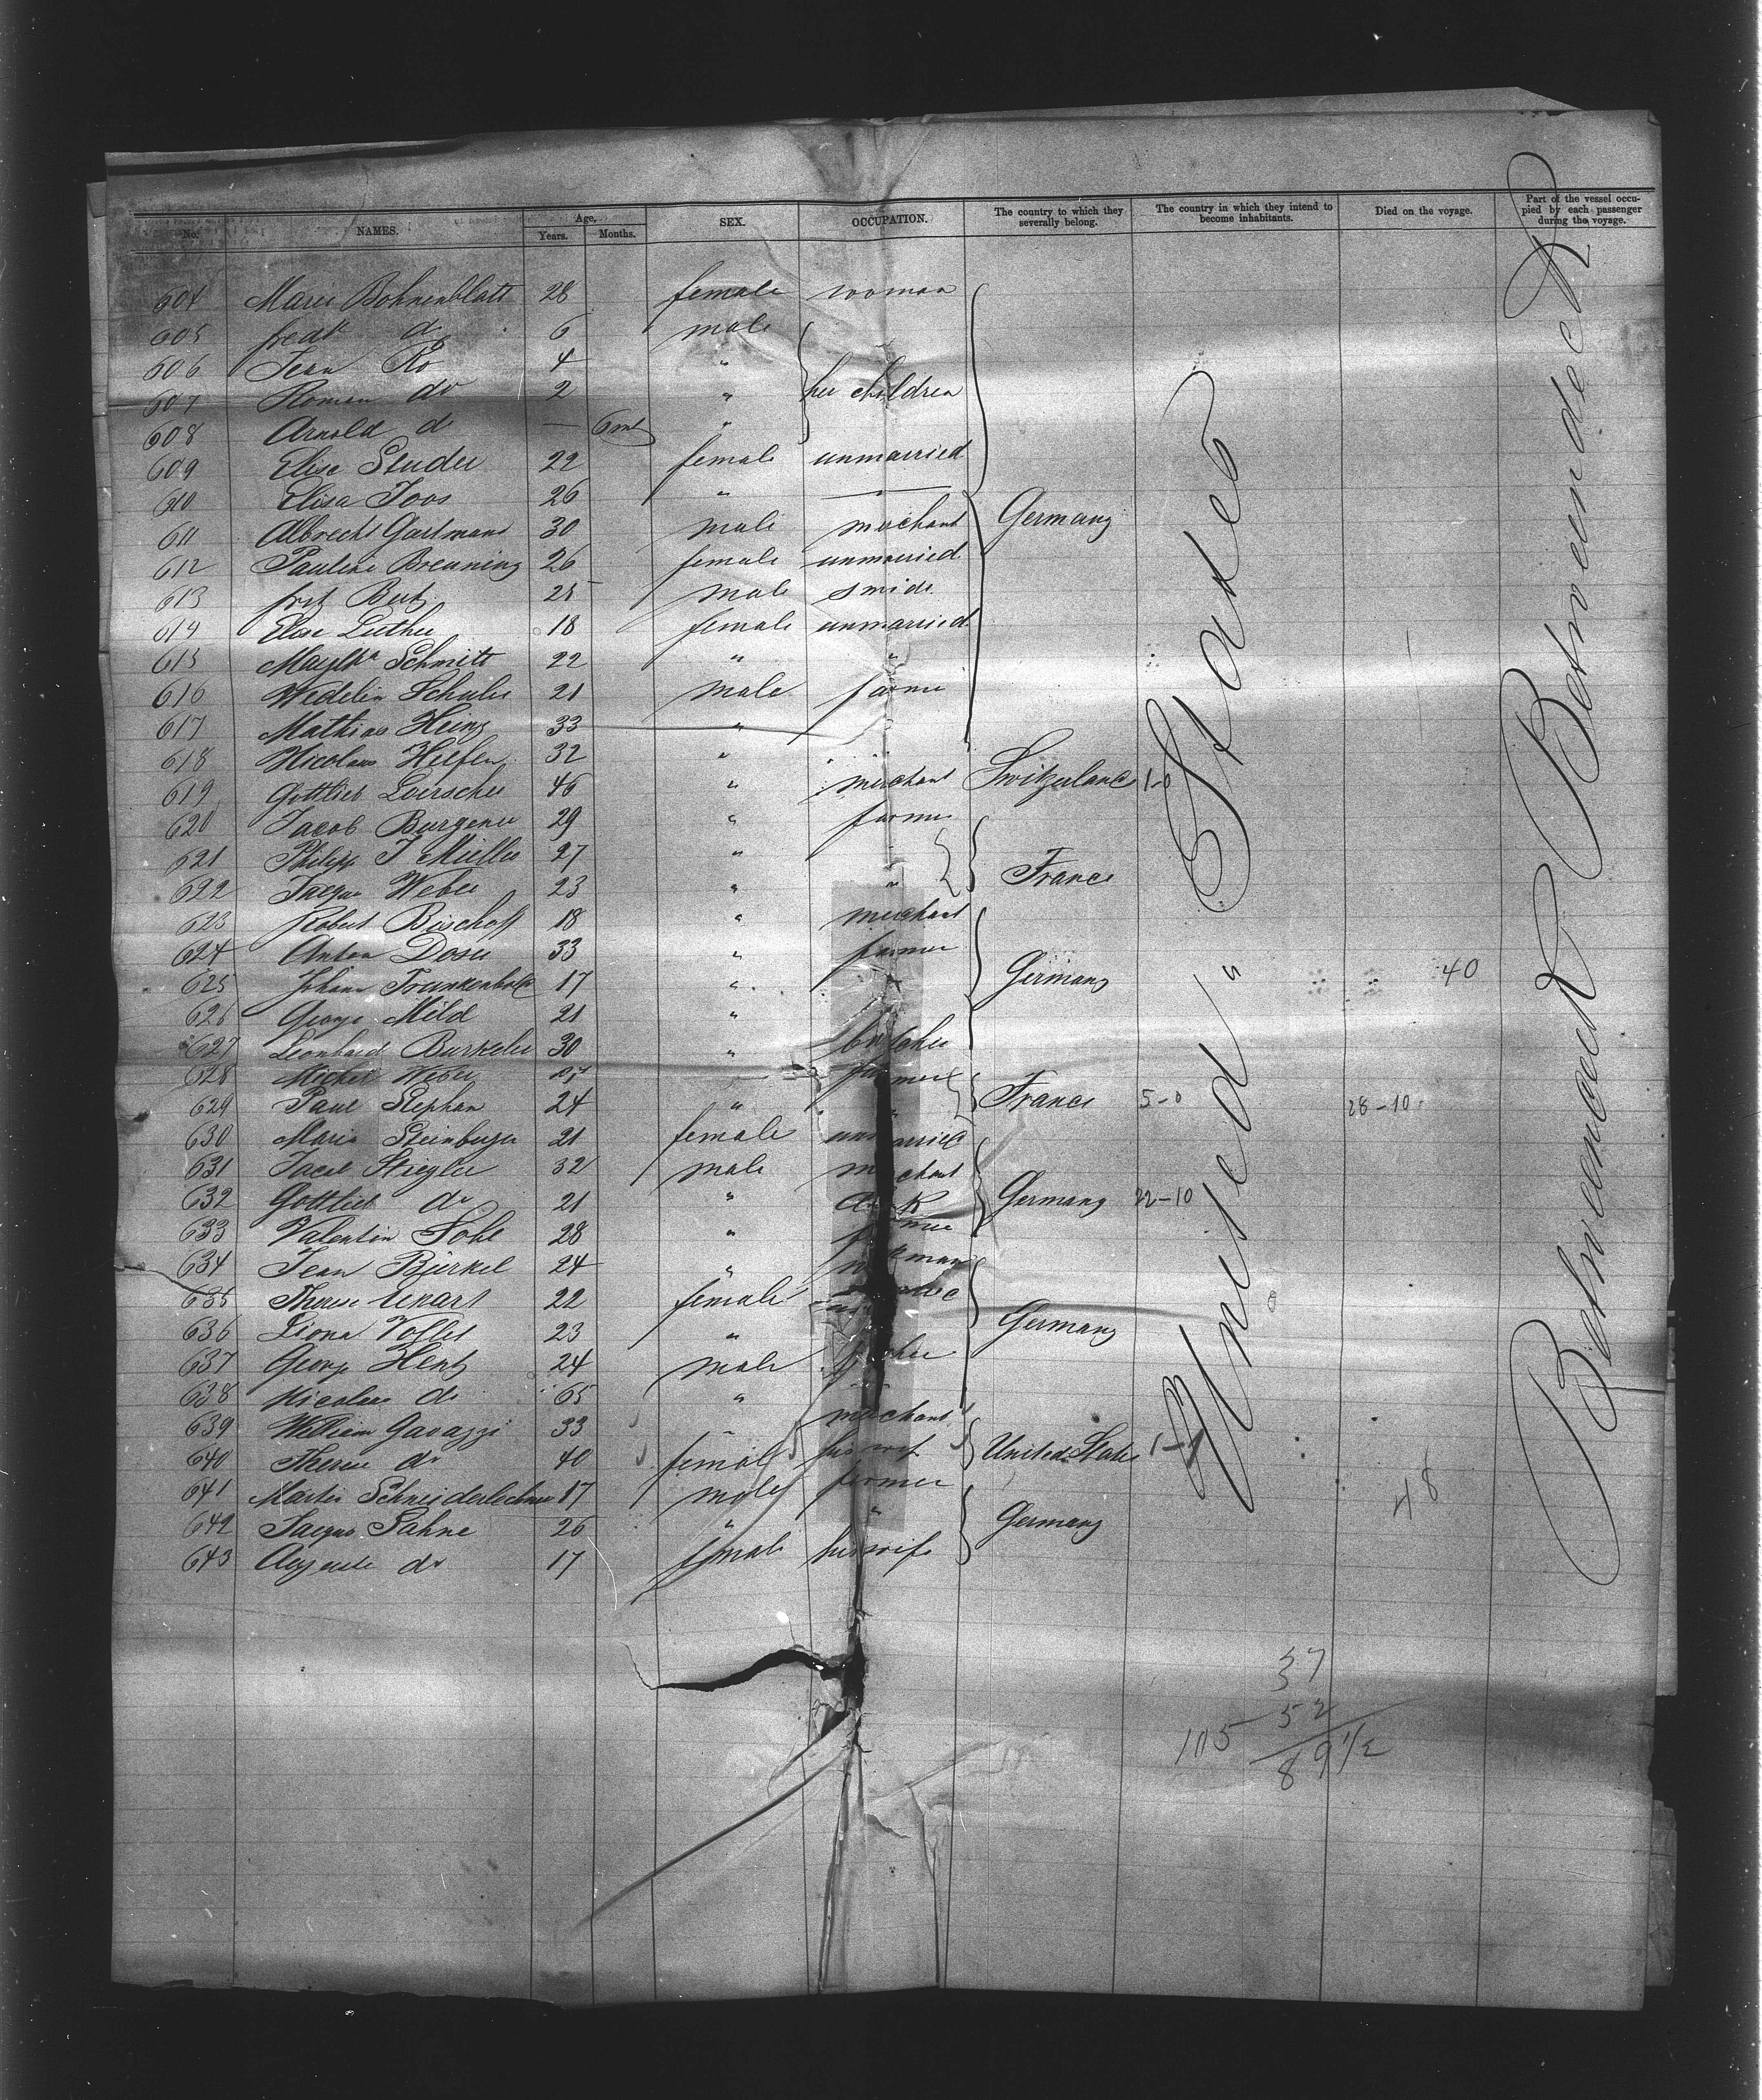 No. NAMES. Age, Years. Months. SEX. OCCUPATION. The country to which they severally belong. The country in which they intend to become inhabitants. Died on the voyage. Part of the vessel occupied by each passenger during the voyage.
604 Marie Bohnenblatt 28 female woman
605 fredk do 6 male
606 Jean Ro 4 "
607 Roman do 2 " her children
608 Arnold d — 6 "
609 Elise Studer 22 female unmarried
610 Elisa Joos 26 " "
611 Albrecht Gartmann 30 male mechant Germany
612 Pauline Breuning 26 female unmarried
613 25 male smide
614 Elise Luther 18 female unmarried
615 Schmitt 22 " "
616 Wedelin Schuler 21 male farmer
617 Mathias Heinz 33 "
618 Nicolaus Hilfen 32 " "
619 Gottlieb Loerscher 46 " merchant Switzerland 1-0
620 Jacob Burgener 29 " farmer
621 Philipp J Müller 27 "
622 Jacque Weber 23 " " France
623 Robert Bischoff 18 " merchant
624 Anton Doser 33 " farmer
625 Johann Trunkenbolz 17 " Germany 40
626 George Mild 21 "
627 Leonhard Burkeler 30 " butcher
628 Michel Weber farmer
629 Paul Stephan 24 " " France 5-0 28-10
630 Maria Steinberger 21 female unmarried
631 Jacob Stiegler 32 male merchant
632 Gottlieb do 21 " Germany 22-10
633 Valentin Sohl 28 "
634 Jean Bürkel 24 "
635 Therese Ekart 22 female
636 Liona Vollet 23 " Germany
637 George Hentz 24 male
638 Nicolaus do 65 "
639 William Gavazzi 33 " merchant
640 Therese do 40 female his wife United States 1-1
641 Martin Schneiderlechner 17 male farmer 48
642 Jacque Sahne 26 " " Germany
643 Auguste do 17 female his wife
United States
Betweendeck Betweendeck
37
52
105 89 1/2